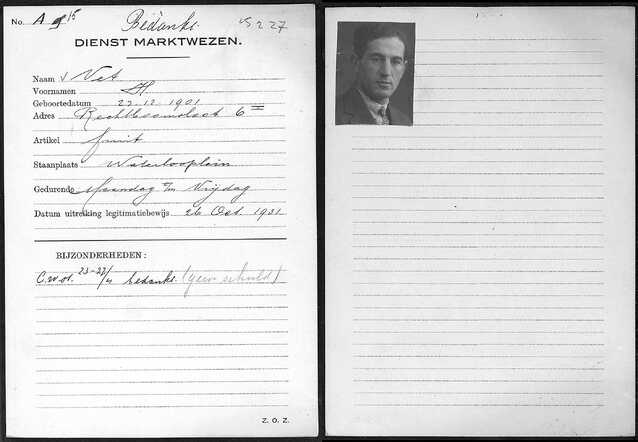 No. A 15
Bedankt.
5227
DIENST MARKTWEZEN.
Naam v Vet
Voornamen H
Geboortedatum 22.12.1901
Adres 6 III
Artikel fruit
Staanplaats Waterlooplein
Gedurende Maandag t/m Vrijdag
Datum uitreiking legitimatiebewijs 26 Oct. 1931
BIJZONDERHEDEN:
bedankt. (geen schuld)
Z. O. Z.